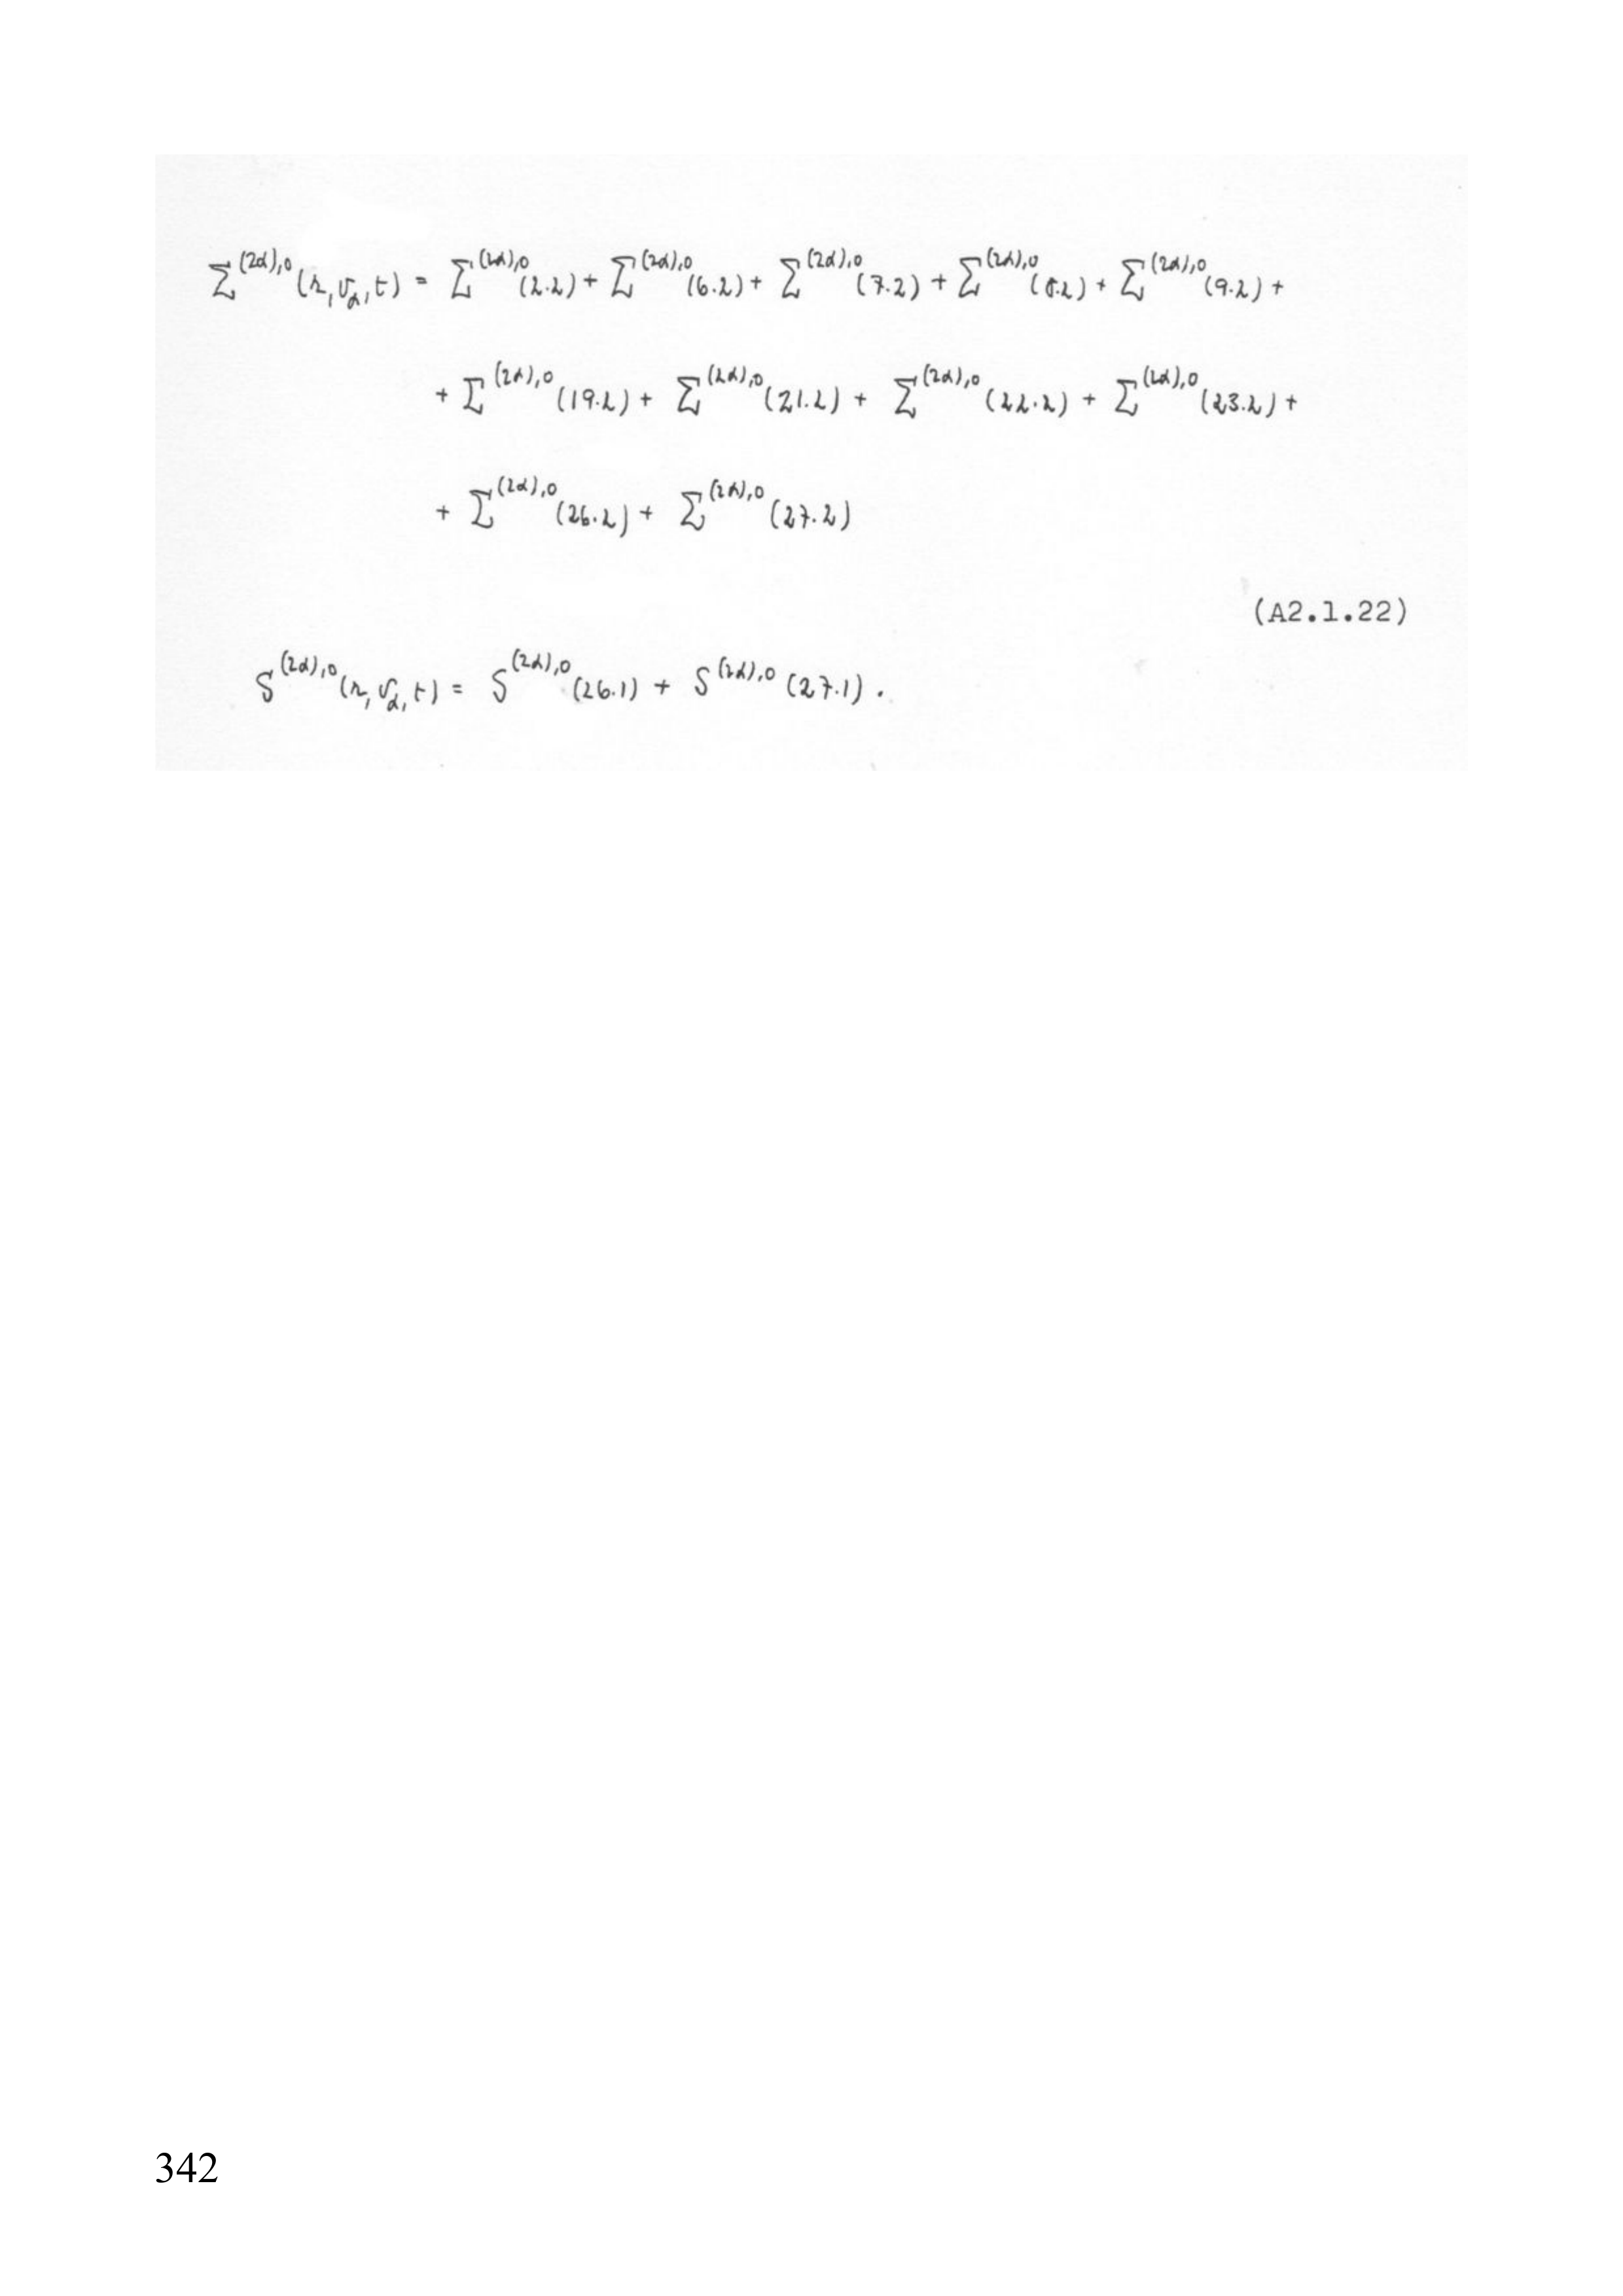 Σ^(2α),0 (r, v_α, t) = Σ^(2α),0 (2.2) + Σ^(2α),0 (6.2) + Σ^(2α),0 (7.2) + Σ^(2α),0 (8.2) + Σ^(2α),0 (9.2) +
+ Σ^(2α),0 (19.2) + Σ^(2α),0 (21.2) + Σ^(2α),0 (22.2) + Σ^(2α),0 (23.2) +
+ Σ^(2α),0 (26.2) + Σ^(2α),0 (27.2)
(A2.1.22)
S^(2α),0 (r, v_α, t) = S^(2α),0 (26.1) + S^(2α),0 (27.1) .
342